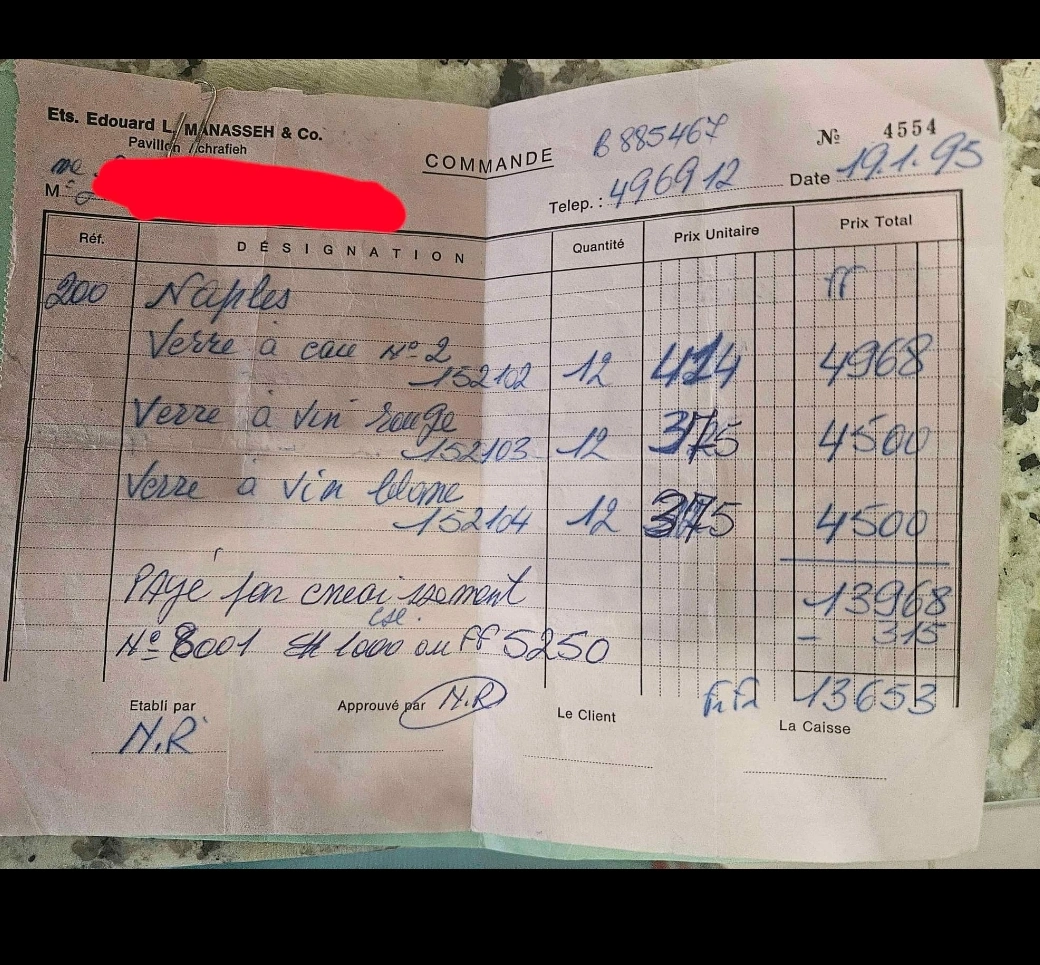 Ets. Edouard L. MANASSEH & Co.
Pavillon Achrafieh
COMMANDE
B 885467
№ 4554
Me
M
Telep. : 496912
Date 19.1.95
Réf. DÉSIGNATION Quantité Prix Unitaire Prix Total
200 Naples ff
Verre à eau Nº 2
152102 12 414 4968
Verre à vin rouge
152103 12 375 4500
Verre à vin blanc
152104 12 375 4500
13968
PAYÉ par encaissement
- 315
cse.
Nº 8001 1000 ou ff 5250
13653
Etabli par Approuvé par N.R Le Client La Caisse
N.R